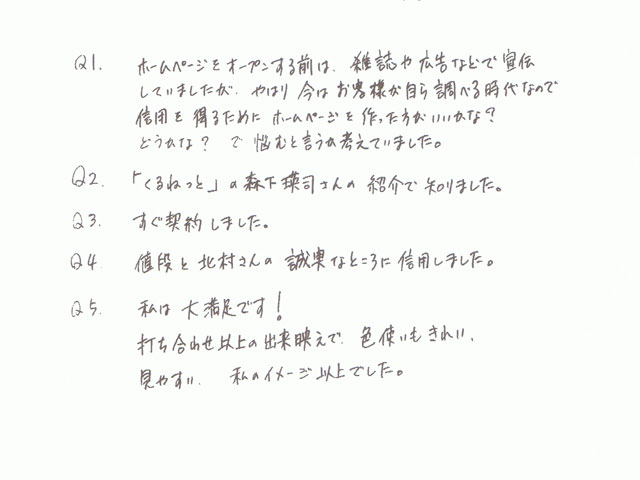 Q1. ホームページをオープンする前は、雑誌や広告などで宣伝
していましたが、やはり今はお客様が自ら調べる時代なので
信用を得るためにホームページを作った方がいいかな？
どうかな？で悩むと言うか考えていました。
Q2. 「くるねっと」の森下瑛司さんの紹介で知りました。
Q3. すぐ契約しました。
Q4. 値段と北村さんの誠実なところに信用しました。
Q5. 私は大満足です！
打ち合わせ以上の出来映えで、色使いもきれい、
見やすい、私のイメージ以上でした。